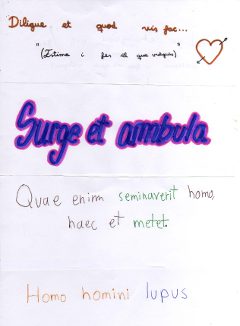 Dilique et quod vis fac...
"(Estima i fes el que vulguis)"
Surge et ambula
Quae enim seminaverit homo,
haec et metet.
Homo homini lupus